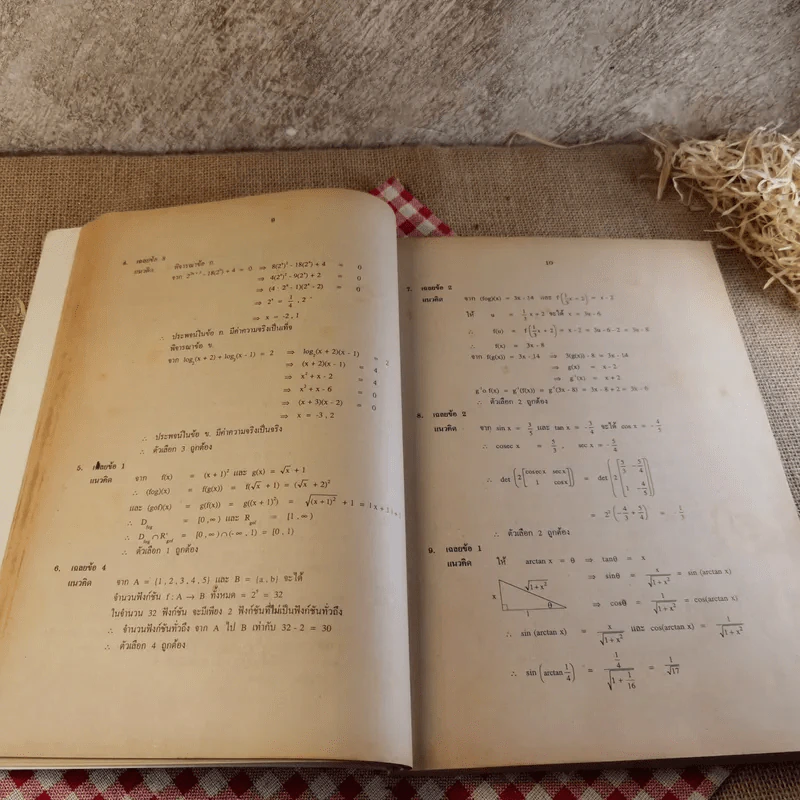 8
4. เฉลยข้อ 3
แนวคิด พิจารณาข้อ ก
จาก 2²ˣ⁺³ - 18(2ˣ) + 4 = 0 ⇒ 8(2ˣ)² - 18(2ˣ) + 4 = 0
⇒ 4(2ˣ)² - 9(2ˣ) + 2 = 0
⇒ (4 · 2ˣ - 1)(2ˣ - 2) = 0
⇒ 2ˣ = 1/4 , 2
⇒ x = -2, 1
∴ ประพจน์ในข้อ ก มีค่าความจริงเป็นเท็จ
พิจารณาข้อ ข.
จาก log₂(x + 2) + log₂(x - 1) = 2 ⇒ log₂(x + 2)(x - 1) = 2
⇒ (x + 2)(x - 1) = 4
⇒ x² + x - 2 = 4
⇒ x² + x - 6 = 0
⇒ (x + 3)(x - 2) = 0
⇒ x = -3 , 2
∴ ประพจน์ในข้อ ข. มีค่าความจริงเป็นจริง
∴ ตัวเลือก 3 ถูกต้อง
5. เฉลยข้อ 1
แนวคิด จาก f(x) = (x + 1)² และ g(x) = √x + 1
∴ (fog)(x) = f(g(x)) = f(√x + 1) = (√x + 2)²
และ (gof)(x) = g(f(x)) = g((x + 1)²) = √(x + 1)² + 1 = |x + 1| + 1
∴ D = [0 , ∞) และ R = [1 , ∞)
∴ D ∩ R' = [0 , ∞) ∩ (-∞ , 1) = [0 , 1)
∴ ตัวเลือก 1 ถูกต้อง
6. เฉลยข้อ 4
แนวคิด จาก A = {1 , 2 , 3 , 4 , 5} และ B = {a , b} จะได้
จำนวนฟังก์ชัน f : A → B ทั้งหมด = 2⁵ = 32
ในจำนวน 32 ฟังก์ชัน จะมีเพียง 2 ฟังก์ชันที่ไม่เป็นฟังก์ชันทั่วถึง
∴ จำนวนฟังก์ชันทั่วถึง จาก A ไป B เท่ากับ 32 - 2 = 30
∴ ตัวเลือก 4 ถูกต้อง
7. เฉลยข้อ 2
แนวคิด จาก (fog)(x) = 3x - 14 และ f(1/3 x + 2) = x - 2
ให้ u = 1/3 x + 2 จะได้ x = 3u - 6
∴ f(u) = f(1/3 x + 2) = x - 2 = 3u - 6 - 2 = 3u - 8
∴ f(x) = 3x - 8
จาก f(g(x)) = 3x - 14 ⇒ 3(g(x)) - 8 = 3x - 14
⇒ g(x) = x - 2
⇒ g⁻¹(x) = x + 2
g⁻¹o f(x) = g⁻¹(f(x)) = g⁻¹(3x - 8) = 3x - 8 + 2 = 3x - 6
∴ ตัวเลือก 2 ถูกต้อง
8. เฉลยข้อ 2
แนวคิด จาก sin x = 3/5 และ tan x = - 3/4 จะได้ cos x = - 4/5
∴ cosec x = 5/3 , sec x = - 5/4
∴ det (2 [cosecx secx; 1 cosx]) = det (2 [5/3 - 5/4; 1 - 4/5])
= 2² (- 4/3 + 5/4) = - 1/3
∴ ตัวเลือก 2 ถูกต้อง
9. เฉลยข้อ 1
แนวคิด ให้ arctan x = θ ⇒ tanθ = x
⇒ sinθ = x/√1 + x² = sin (arctan x)
x √1+x² θ 1
⇒ cosθ = 1/√1 + x² = cos(arctan x)
∴ sin (arctan x) = x/√1 + x² และ cos(arctan x) = 1/√1 + x²
∴ sin (arctan 1/4) = 1/4/√1 + 1/16 = 1/√17